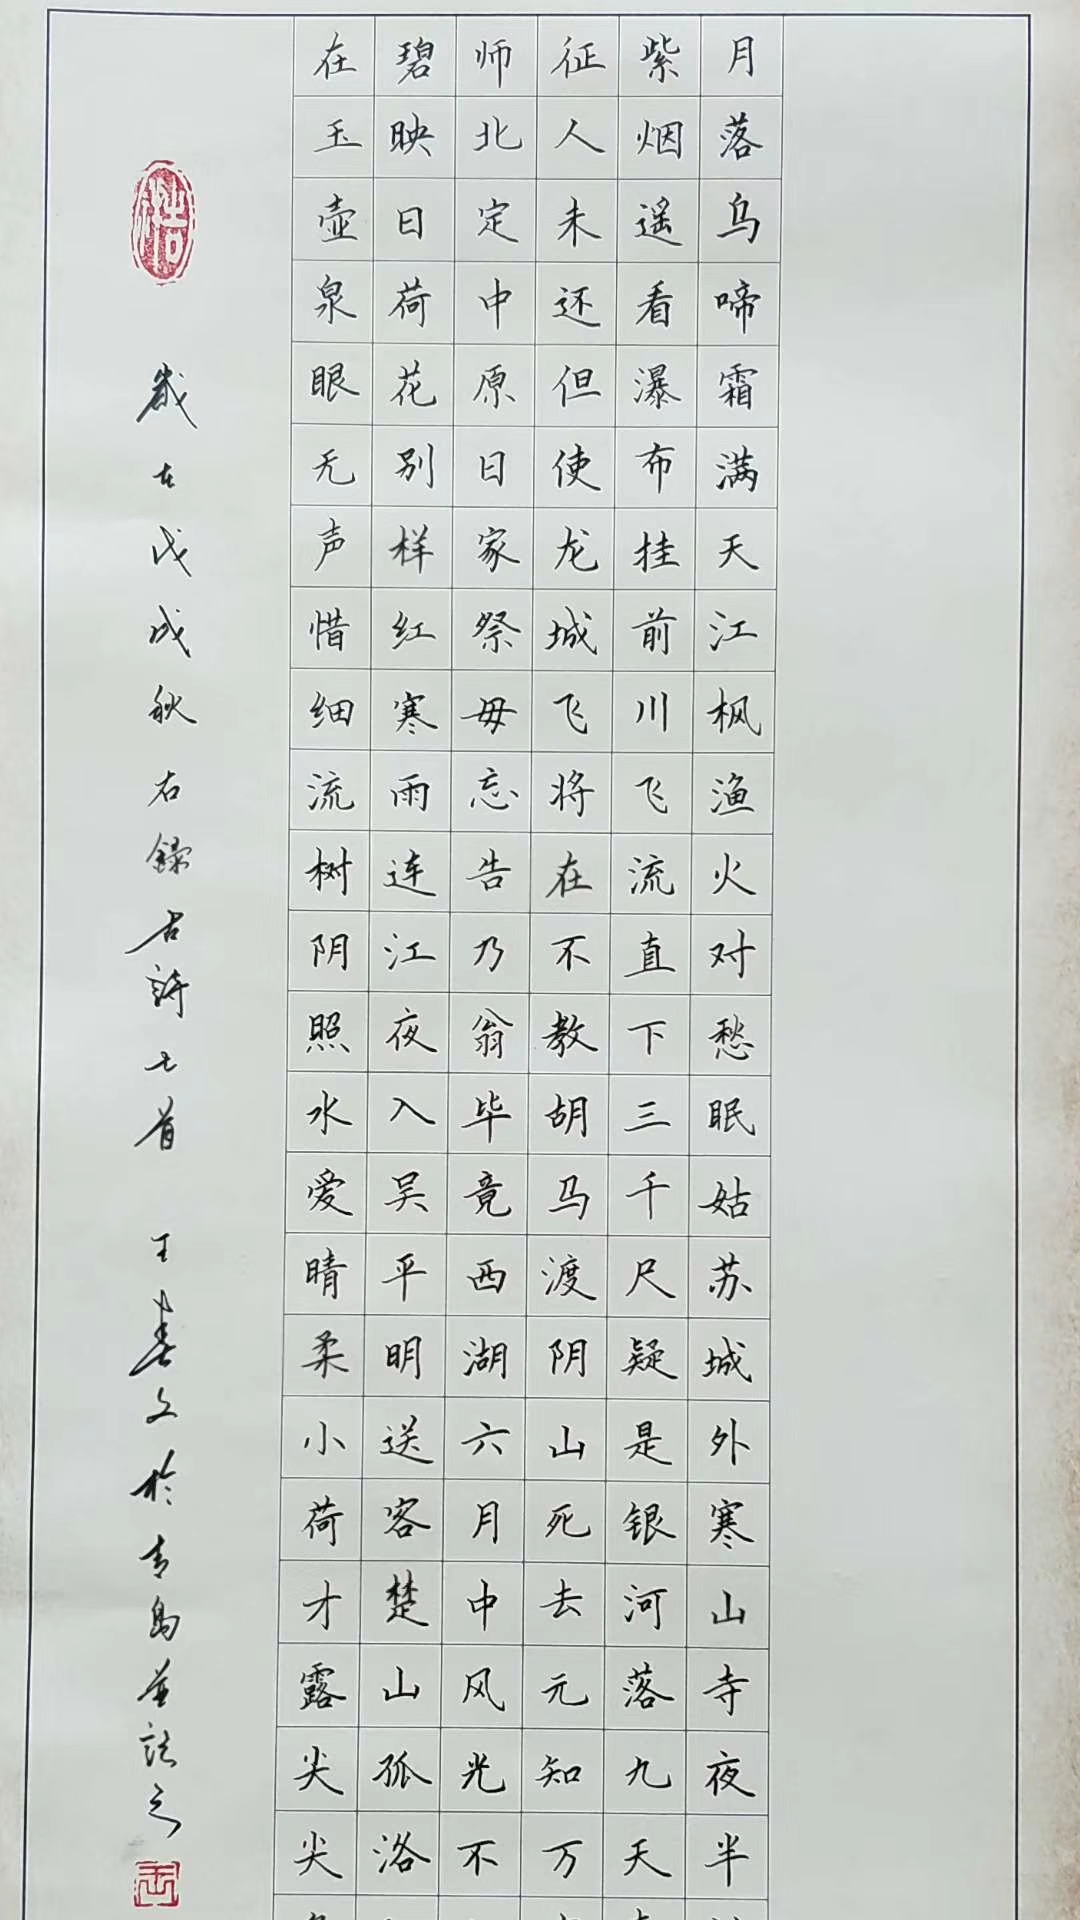 月落乌啼霜满天江枫渔火对愁眠姑苏城外寒山寺夜半
紫烟遥看瀑布挂前川飞流直下三千尺疑是银河落九天
征人未还但使龙城飞将在不教胡马渡阴山死去元知万
师北定中原日家祭毋忘告乃翁毕竟西湖六月中风光不
碧映日荷花别样红寒雨连江夜入吴平明送客楚山孤洛
在玉壶泉眼无声惜细流树阴照水爱晴柔小荷才露尖尖
歲在戊戌秋右錄古詩七首 王書文於青島並記之